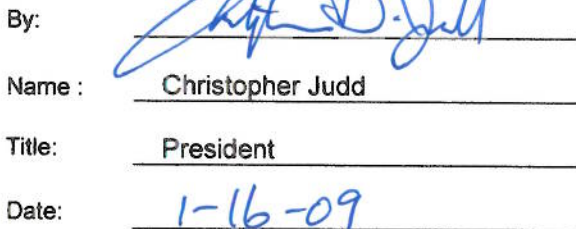 By: Christopher D. Judd
Name : Christopher Judd
Title: President
Date: 1-16-09